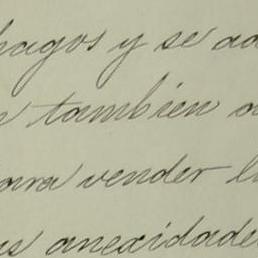 pagos y se ad
n también a
para vender l
us anexidade